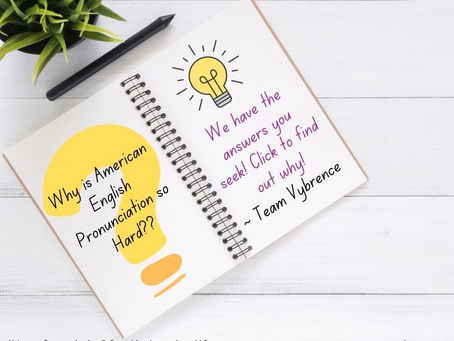 Why is American
English
Pronunciation so
Hard??
We have the
answers you
seek! Click to find
out why!
~ Team Vybrence